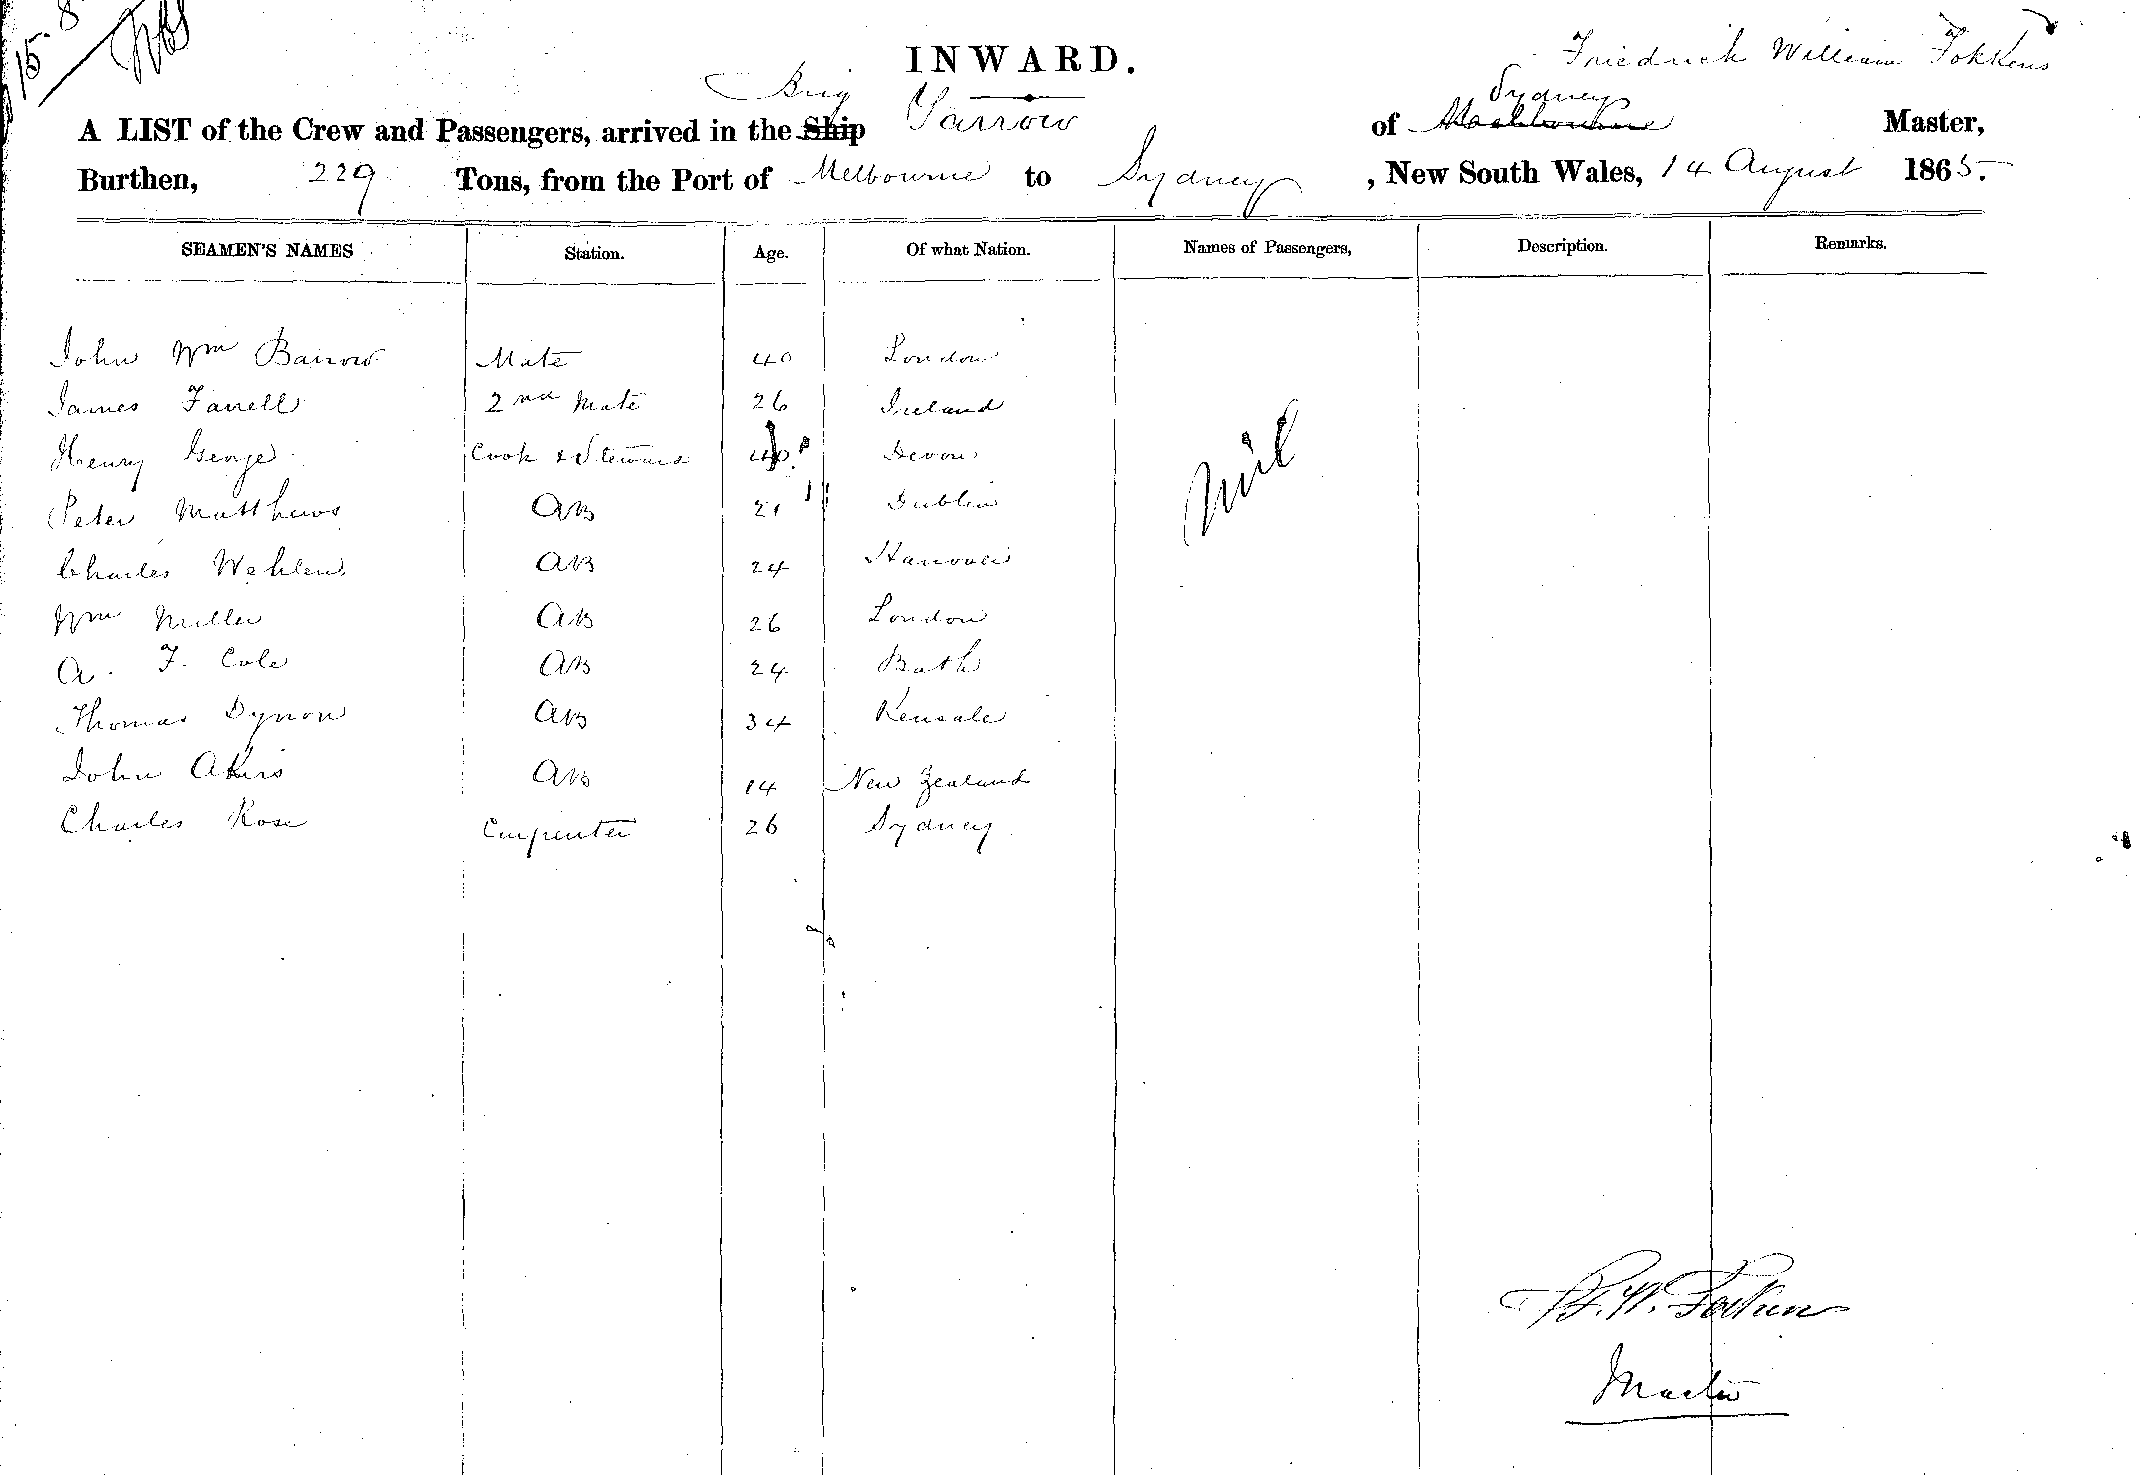 15. 8
INWARD.
Friedrich William Fokkens
Brig Sydney
A LIST of the Crew and Passengers, arrived in the Ship Yarrow of Melbourne Master,
Burthen, 229 Tons, from the Port of Melbourne to Sydney, New South Wales, 14 August 1865.
SEAMEN'S NAMES Station. Age. Of what Nation. Names of Passengers, Description. Remarks.
John Wm Barrow Mate 40 London
James Farrell 2nd Mate 26 Ireland
Henry George Cook & Steward 40 Devon
Peter Matthews AB 21 Dublin
Charles Wehlen AB 24 Hanover
Wm Miller AB 26 London
A. F. Cole AB 24 Bath
Thomas Dynon AB 34 Kensale
John Akers AB 14 New Zealand
Charles Rose Carpenter 26 Sydney
Nil
F. W. Fokken
Master